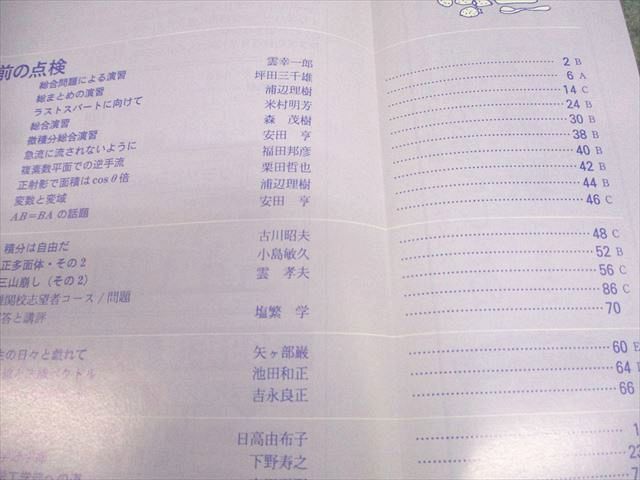 前の点検
総合問題による演習 雲幸一郎 2 B
総まとめの演習 坪田三千雄 6 A
ラストスパートに向けて 浦辺理樹 14 C
総合演習 米村明芳 24 B
微積分総合演習 森 茂樹 30 B
急流に流されないように 安田 亨 38 B
複素数平面での逆手流 福田邦彦 40 B
正射影で面積はcosθ倍 栗田哲也 42 B
変数と変域 浦辺理樹 44 B
AB=BAの話題 安田 亨 46 C
積分は自由だ 古川昭夫 48 C
正多面体・その2 小島敏久 52 B
三山崩し(その2) 雲 孝夫 56 C
関校志望者コース/問題 86 C
答と講評 塩繁 学 70
の日々と戯れて 矢ヶ部巌 60 E
ベクトル 池田和正 64
吉永良正 66
日高由布子 1
下野寿之 23